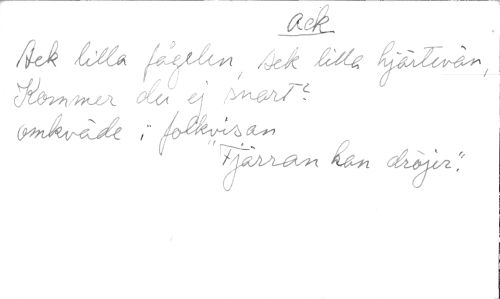 Ack
Ack lilla fågelen, Ack lilla hjärtevän,
Kommer du ej snart?
omkväde i folkvisan
"Fjärran han dröjer".